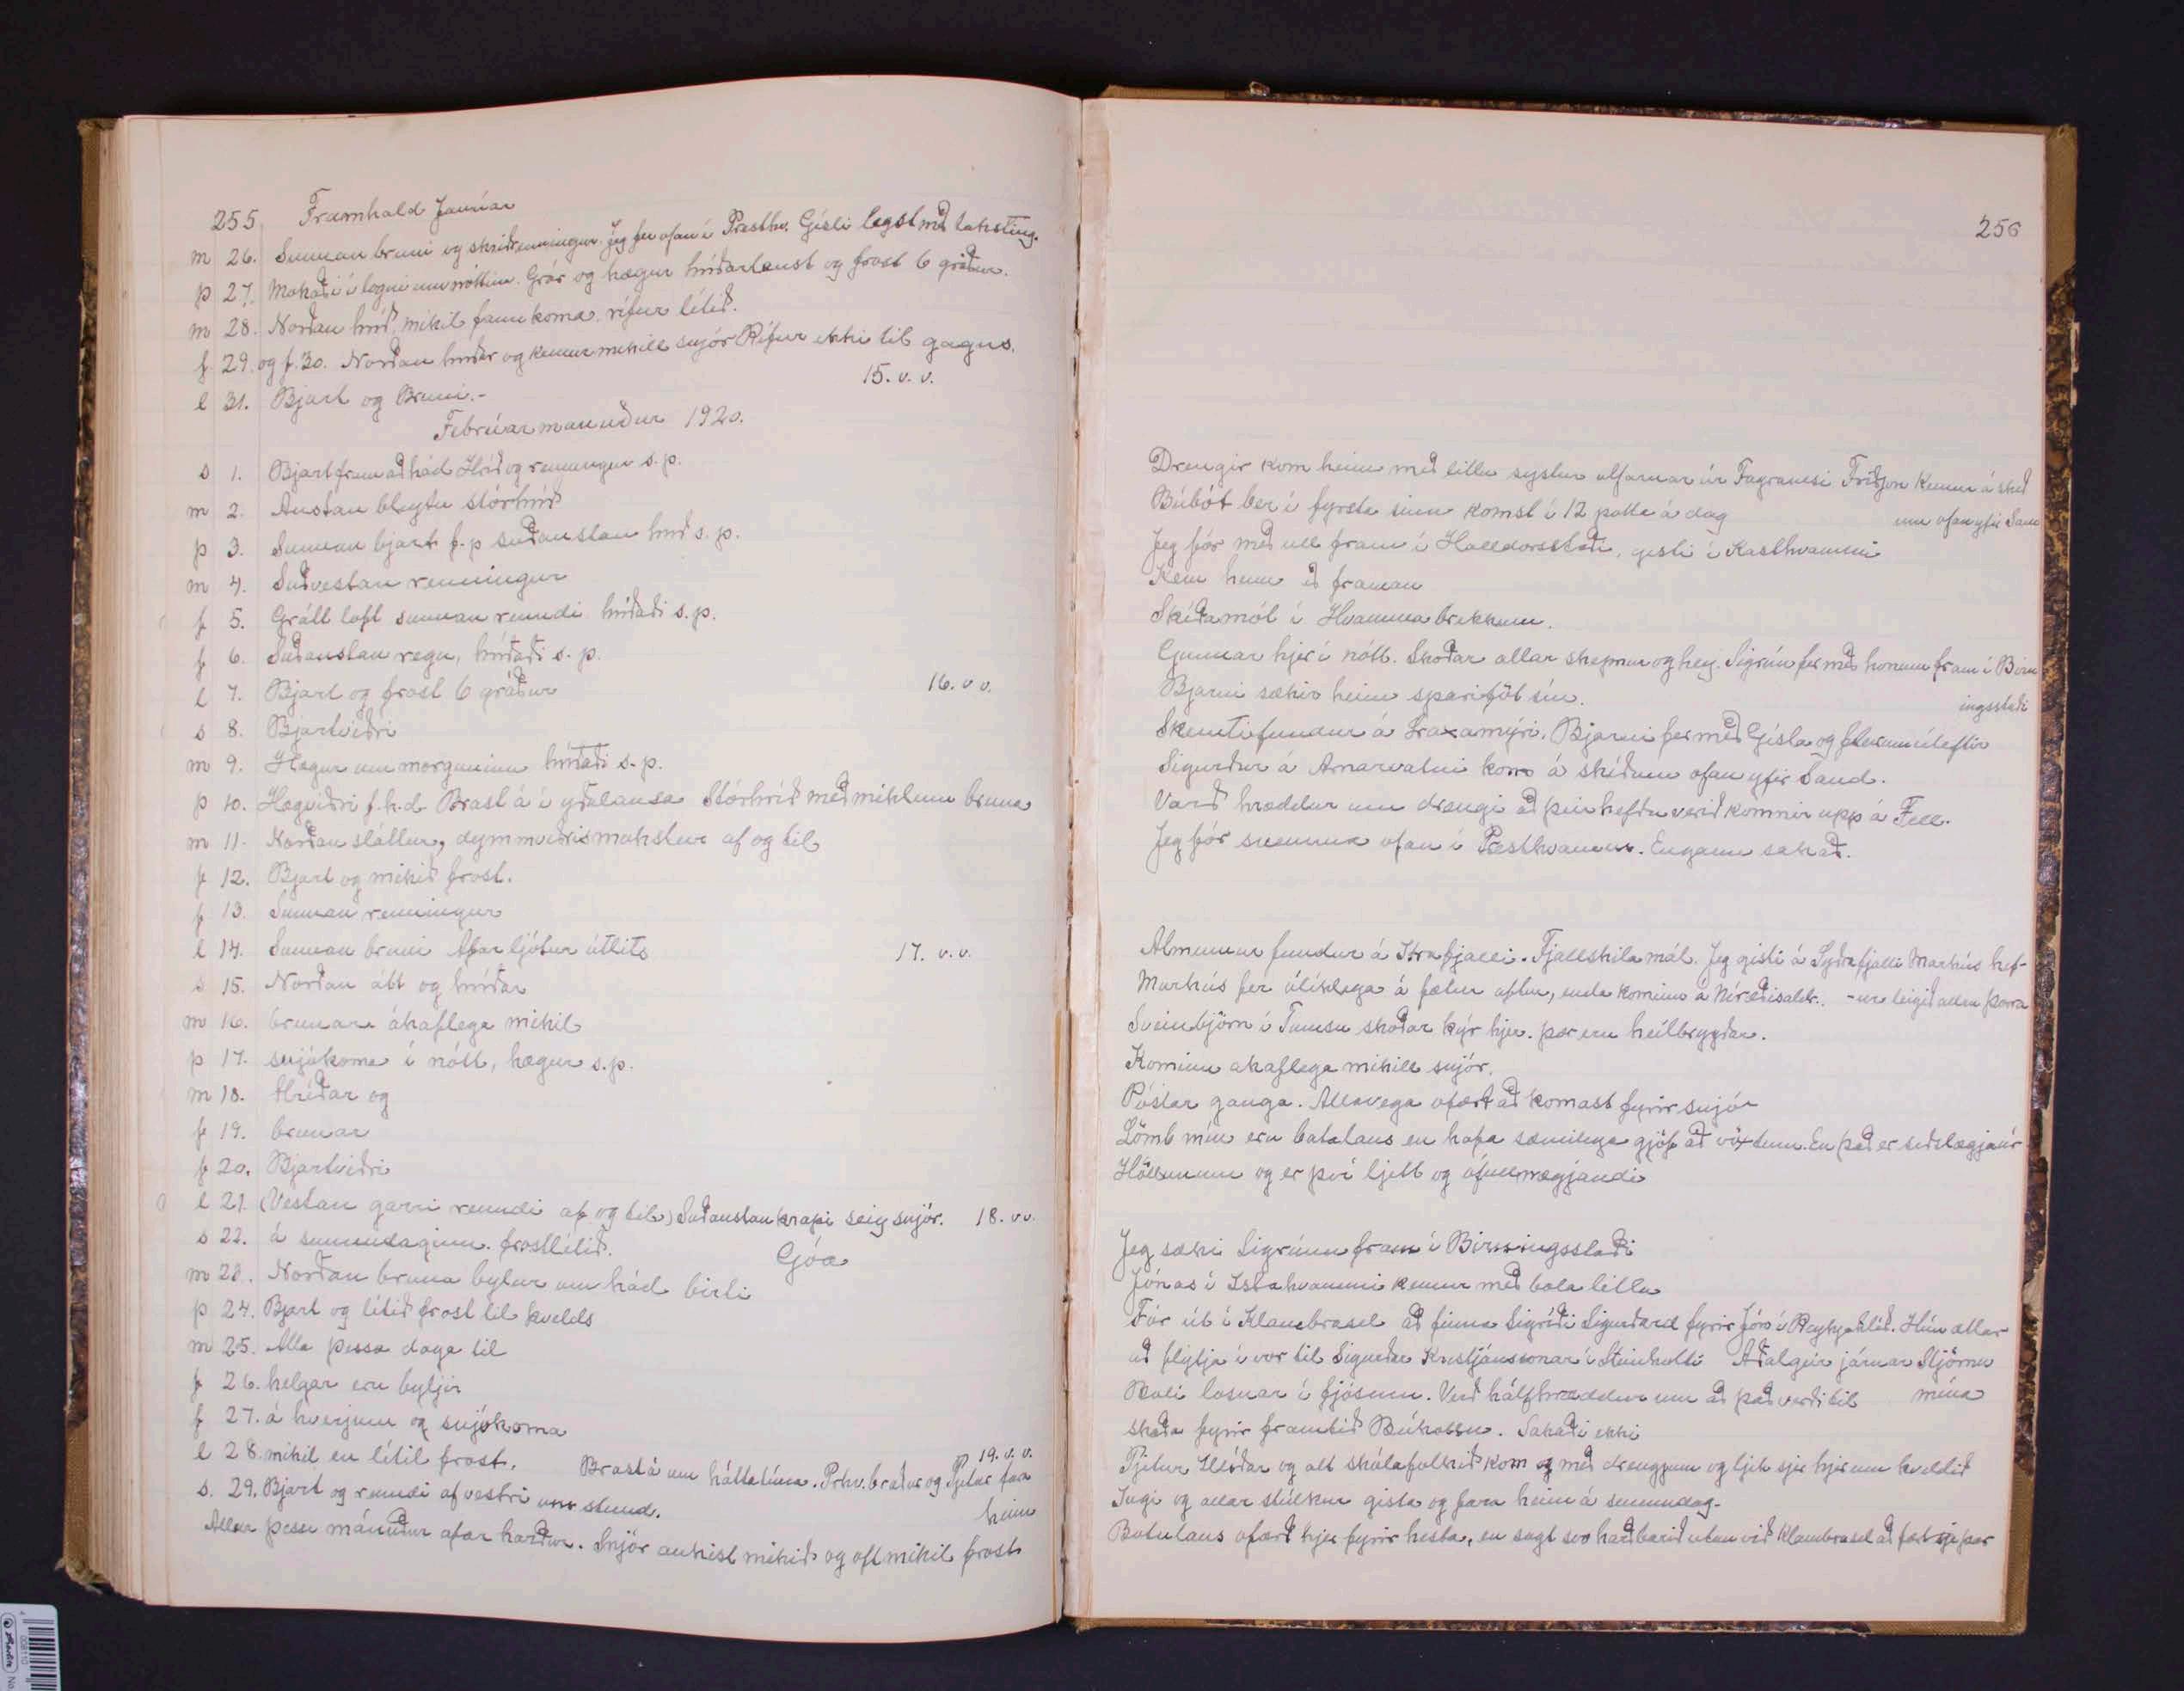 255. Framhald Janúar
m 26. Sunnan bruni og skriðrenningur. Jeg fer ofan í Presthv. Gísli legst með takstíng.
þ 27. Mokaði í logni um nóttina. Grár og hægur hríðarlaust og frost 6 gráður.
m 28. Norðan hríð, mikil fannkoma. rífur lítið.
f 29. og f. 30. Norðan hríðar og kemur mikill snjór Rífur ekki til gagns.
l 31. Bjart og Bruni.- 15. v. v.
Febrúarmanuður 1920.
s 1. Bjart fram að hád. Hríð og renningur s.p.
m 2. Austan bleytu stórhríð
þ 3. Sunnan bjart f.p suðaustan hríð s.p.
m 4. Suðvestan renningur
f 5. Grátt loft sunnan renndi hríðaði s.p.
f 6. Suðaustan regn, hríðaði s.p.
l 7. Bjart og frost 6 gráður 16. v v.
s 8. Bjartviðri
m 9. Hægur um morguninn hríðaði s.p.
þ 10. Hægviðri f.h.d. Brast á í yðulausa Stórhríð með miklum bruna
m 11. Norðan sláttur, dymmviðrismokstur af og til
f 12. Bjart og mikið frost.
f 13. Sunnan renningur
l 14. Sunnan bruni Afar ljótur útlits 17. v. v.
s 15. Norðan átt og hríðar
m 16. brunar ákaflega mikil
þ 17. snjókoma í nótt, hægur s.p.
m 18. Hríðar og
f 19. brunar
f 20. Bjartviðri
l 21. (Vestan garri renndi af og til) Suðaustan krapi seig snjór. 18. v v.
s 22. á sunnudaginn. frostlítið. Góa
m 23. Norðan bruna bylur um hád birti
þ 24. Bjart og lítið frost til kvelds
m 25. Alla þessa daga til
f 26. helgar eru byljir
f 27. á hverjum og snjókoma
l 28. mikil en lítil frost. Brast á um háttatíma. Prhv.bræður og Pjetur fara 19. v. v.
s. 29. Bjart og renndi af vestri um stund. heim
Allur þessi mánuður afar harður. Snjór aukist mikið og oft mikil frost
256
Drengir kom heim með litlu systur alfarnar úr Fagranesi Friðjon kemur á skíð
Búbót ber í fyrsta sinn komst í 12 potta á dag um ofan yfir Sand
Jeg fór með ull fram í Halldorsstaði, gisti í Kasthvammi
Kem heim að framan
Skíðamót í Hvammabrekkum.
Gunnar hjer í nótt. Skoðar allar skepnur og hey. Sigrún fer með honum fram í Birn
Bjarni sækir heim spariföt sín. ingsstaði
Skemtifundur á Laxamýri. Bjarni fer með Gísla og fleirum úteftir
Sigurður á Arnarvatni kom á skíðum ofan yfir Sand.
Varð hræddur um drengi að þeir hefðu verið komnir upp á Fell.
Jeg fór snemma ofan í Presthvamm. Engann sakað.
Almennur fundur á Ytrafjalli. Fjallskilamál. Jeg gisti á Syðrafjalli Markús hef-
Markús fer ólíklega á fætur aftur, enda kominn á Níræðisaldr. -ur leigið allan þorra
Sveinbjörn í Tumsu skoðar kýr hjer. þær eru heilbrygðar.
Kominn ákaflega mikill snjór.
Póstar ganga. Allavega ofært að komast fyrir snjó
Lömb mín eru batalaus en hafa sæmilega gjöf að vöxtum. En það er seðslægja úr
Höllunum og er því ljett og ófullnægjandi
Jeg sæki Sigrúnu fram í Birningsstaði
Jónas í Ystahvammi kemur með bola litla
Fór út í Klambrasel að finna Sigríði Sigurðard fyrir Jón í Reykjahlíð. Hún ætlar
að flytja í vor til Sigurðar Kristjánssonar í Steinholti Aðalgeir járnar Stjörnu
Boli losnar í fjósinu. Verð hálfhræddur um að það verði til mína
skaða fyrir framtíð Búkollu. Sakaði ekki
Pjetur Hlíðar og alt skólafolkið kom með drengjum og ljek sjer hjer um kveldið
Ingi og allar stúlkur gista og fara heim á sunnudag.
Botnlaus ofærð hjer fyrir hesta, en sagt svo harðbarið utan við Klambrasel að fært sje þar